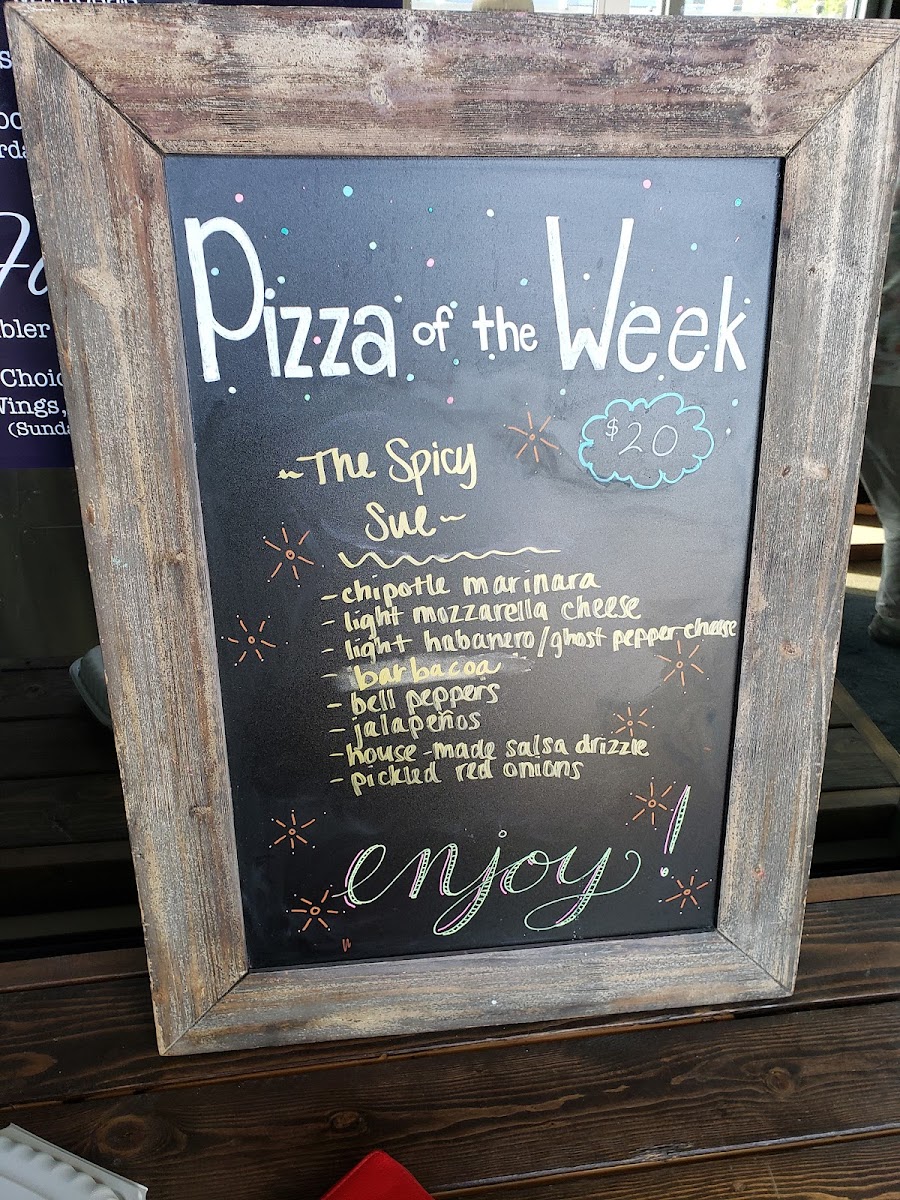 Pizza of the Week
$20
~The Spicy
Sue~
-chipotle marinara
-light mozzarella cheese
-light habanero/ghost pepper cheese
-barbacoa
-bell peppers
-jalapeños
-house-made salsa drizzle
-pickled red onions
enjoy!
Wings,
(Sunda